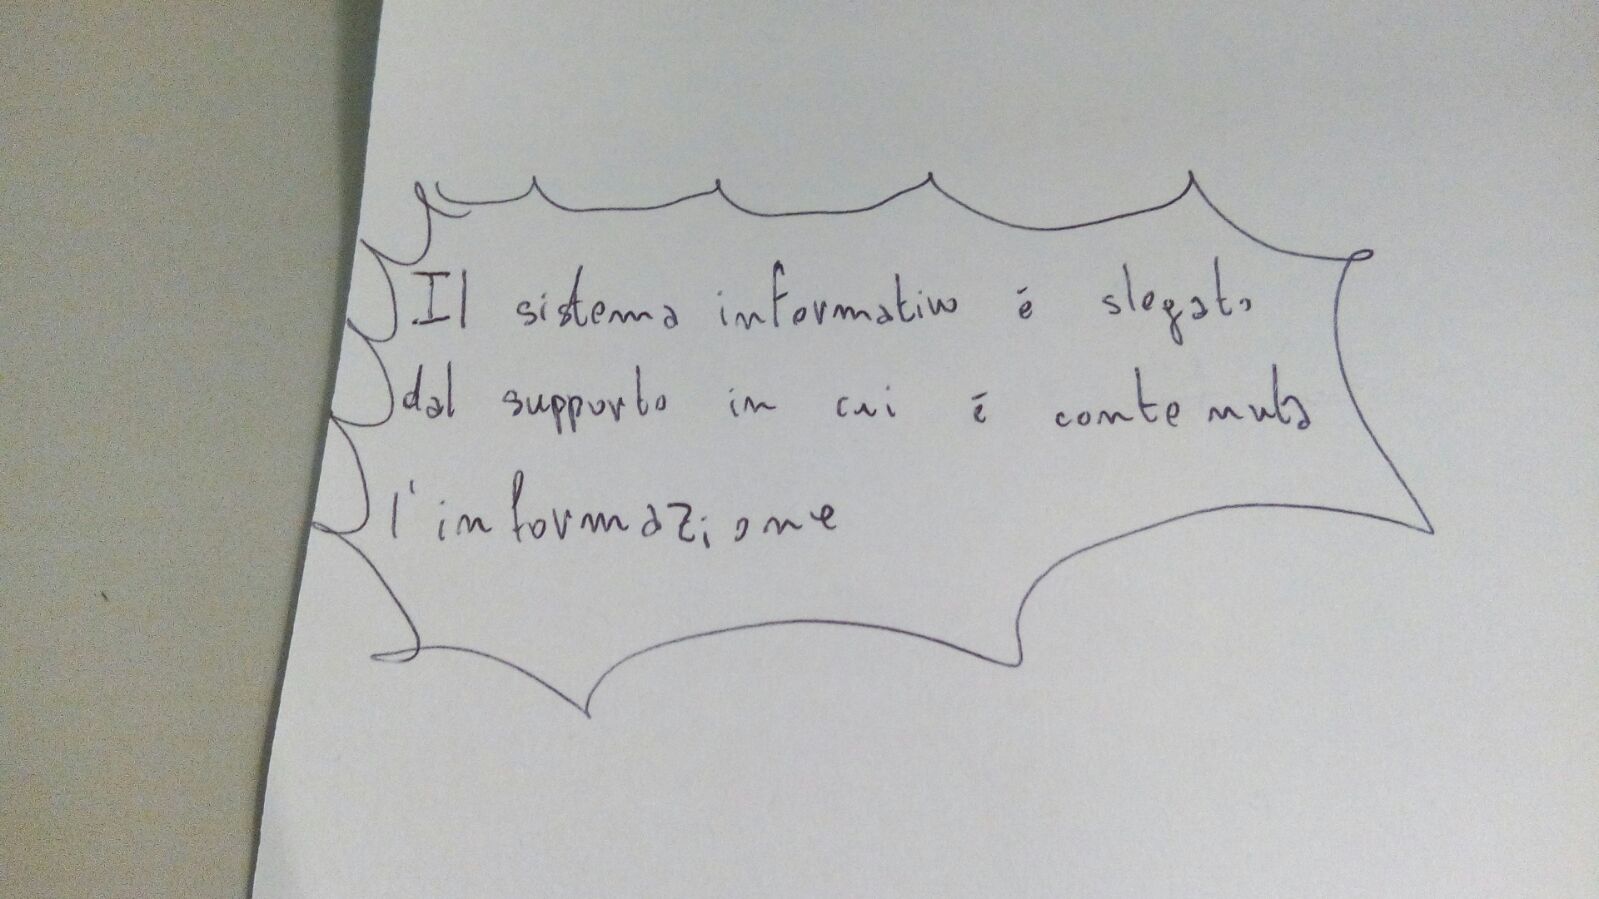 Il sistema informativo è slegato
dal supporto in cui è contenuta
l'informazione